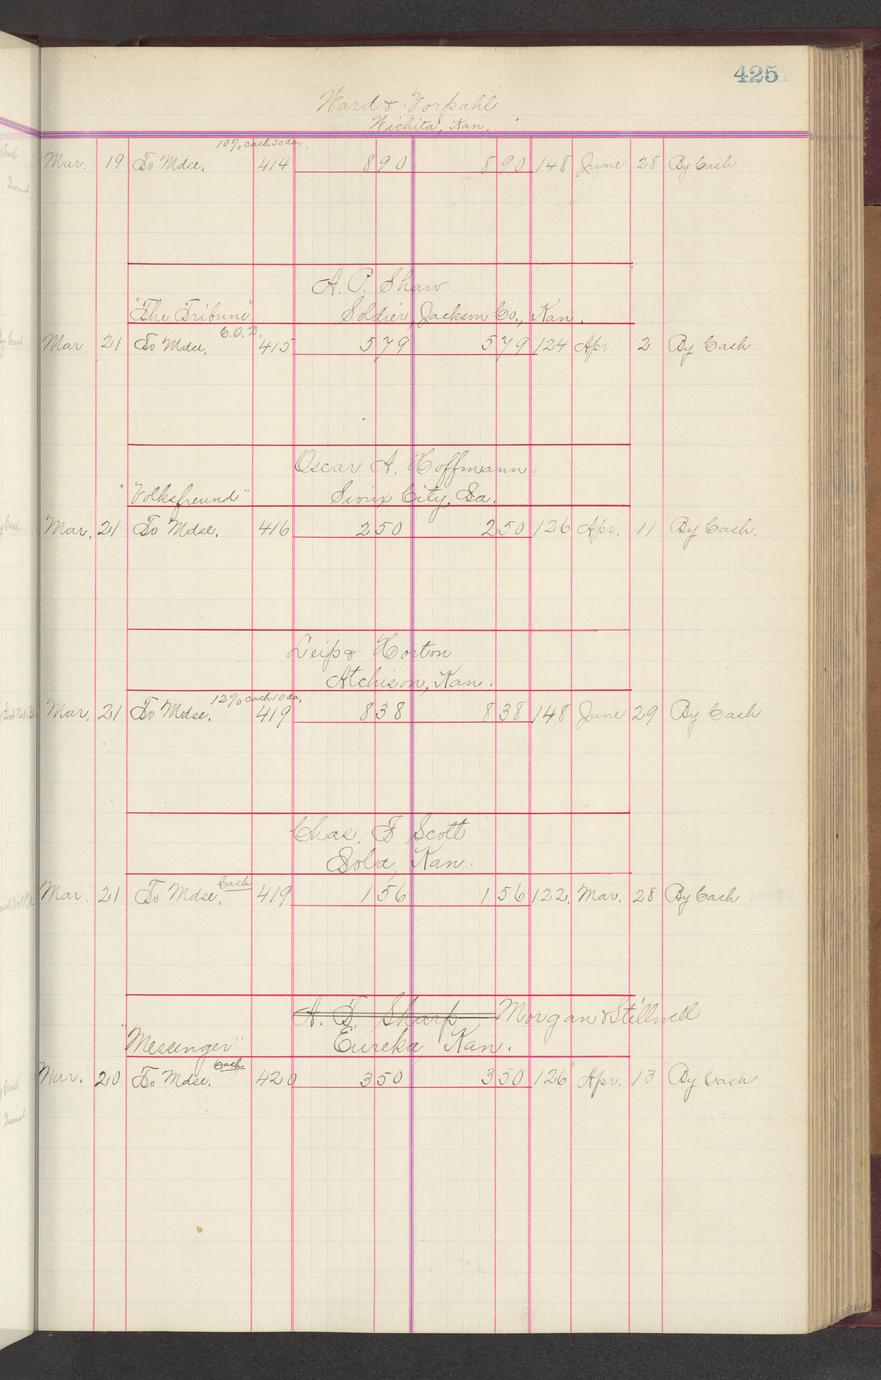 425
Ward & Vorpahl
Wichita, Kan.
10% cash 30 da.
Mar. 19 To Mdse. 414 8 90 8 90 148 June 28 By Cash
A. P. Shaw
"The Tribune" Soldier, Jackson Co., Kan.
C.O.D.
Mar. 21 To Mdse, 415 5 79 5 79 124 Apr. 2 By Cash.
Oscar A. Hoffmann.
"Volksfreund" Sioux City, Ia.
Mar. 21 To Mdse. 416 2 50 2 50 126 Apr. 11 By Cash.
Leip & Horton
Atchison, Kan.
12% cash 10 da.
Mar. 21 To Mdse. 419 8 38 8 38 148 June 29 By Cash
Chas. F Scott
Iola, Kan.
Cash
Mar. 21 To Mdse. 419 1 56 1 56 122. Mar. 28 By Cash
A. F. Sharp Morgan & Stillwell
"Messenger" Eureka Kan.
Cash
Mar. 20 To Mdse. 420 3 50 3 50 126 Apr. 13 By Cash